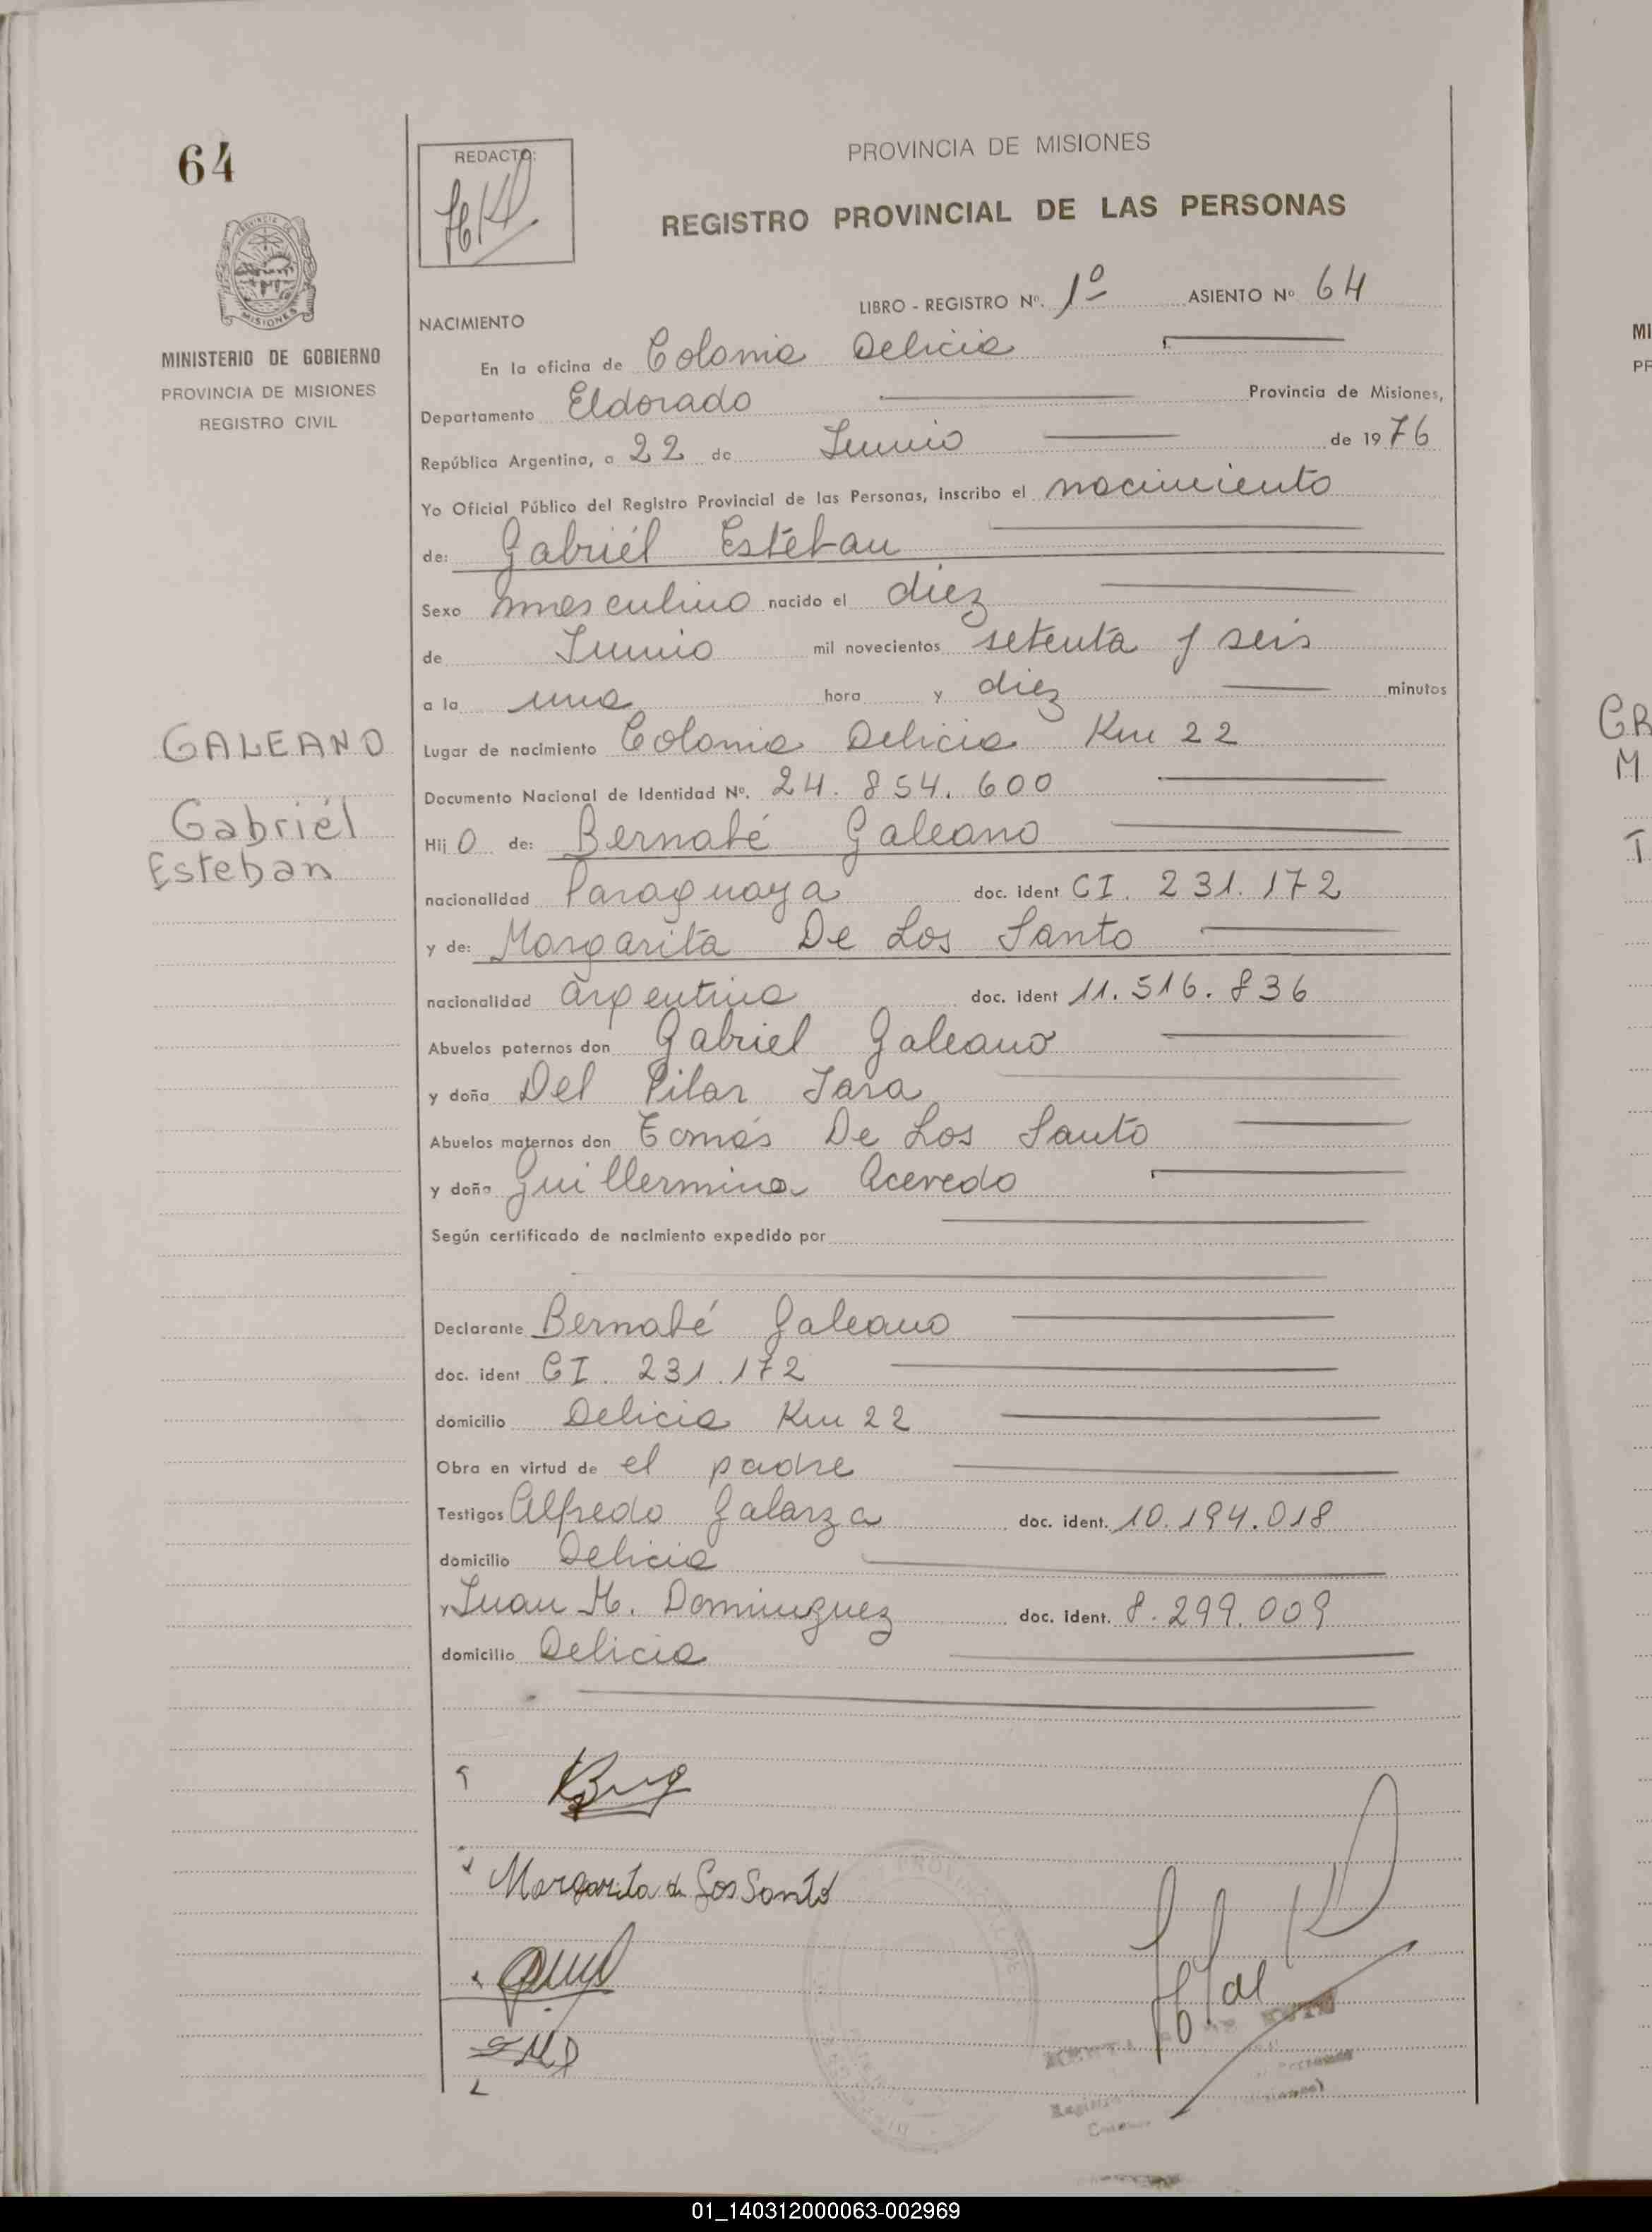 64
REDACTO:
PROVINCIA DE MISIONES
REGISTRO PROVINCIAL DE LAS PERSONAS
LIBRO - REGISTRO Nº. 1º ASIENTO Nº 64
MISIONES
MINISTERIO DE GOBIERNO
PROVINCIA DE MISIONES
REGISTRO CIVIL
NACIMIENTO
En la oficina de Colonia Delicia
Departamento Eldorado Provincia de Misiones,
República Argentina, a 22 de Junio de 1976
Yo Oficial Público del Registro Provincial de las Personas, inscribo el nacimiento
de: Gabriél Estéban
Sexo masculino nacido el diez
de Junio mil novecientos setenta y seis
a la una hora y diez minutos
GALEANO
Gabriél
Esteban
Lugar de nacimiento Colonia Delicia Km 22
Documento Nacional de Identidad Nº. 24.854.600
Hij o de: Bernabé Galeano
nacionalidad Paraguaya doc. ident CI. 231.172
y de: Margarita De Los Santo
nacionalidad argentina doc. ident 11.516.836
Abuelos paternos don Gabriel Galeano
y doña Del Pilar Jara
Abuelos maternos don Tomás De Los Santo
y doña Guillermina Acevedo
Según certificado de nacimiento expedido por
Declarante Bernabé Galeano
doc. ident CI. 231.172
domicilio Delicia Km 22
Obra en virtud de el padre
Testigos Alfredo Galarza doc. ident. 10.194.018
domicilio Delicia
y Juan H. Dominguez doc. ident. 8.299.009
domicilio Delicia
Margarita de Los Santo
01_140312000063-002969